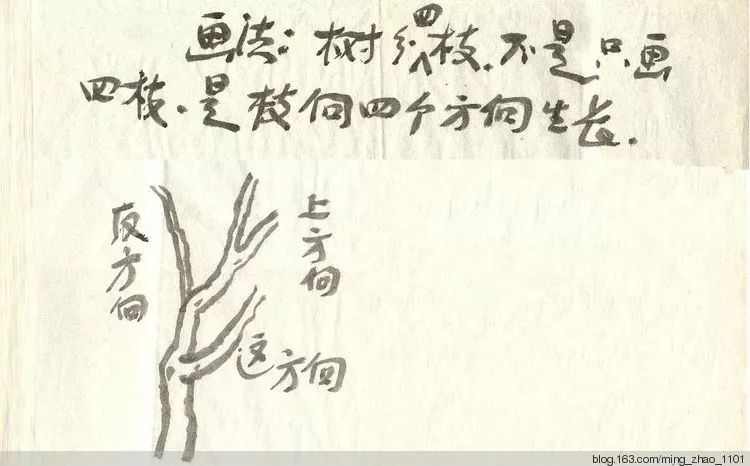 画法：树分四枝．不是只画
四枝．是枝向四个方向生长．
反方向
上方向
这方向
blog.163.com/ming_zhao_1101